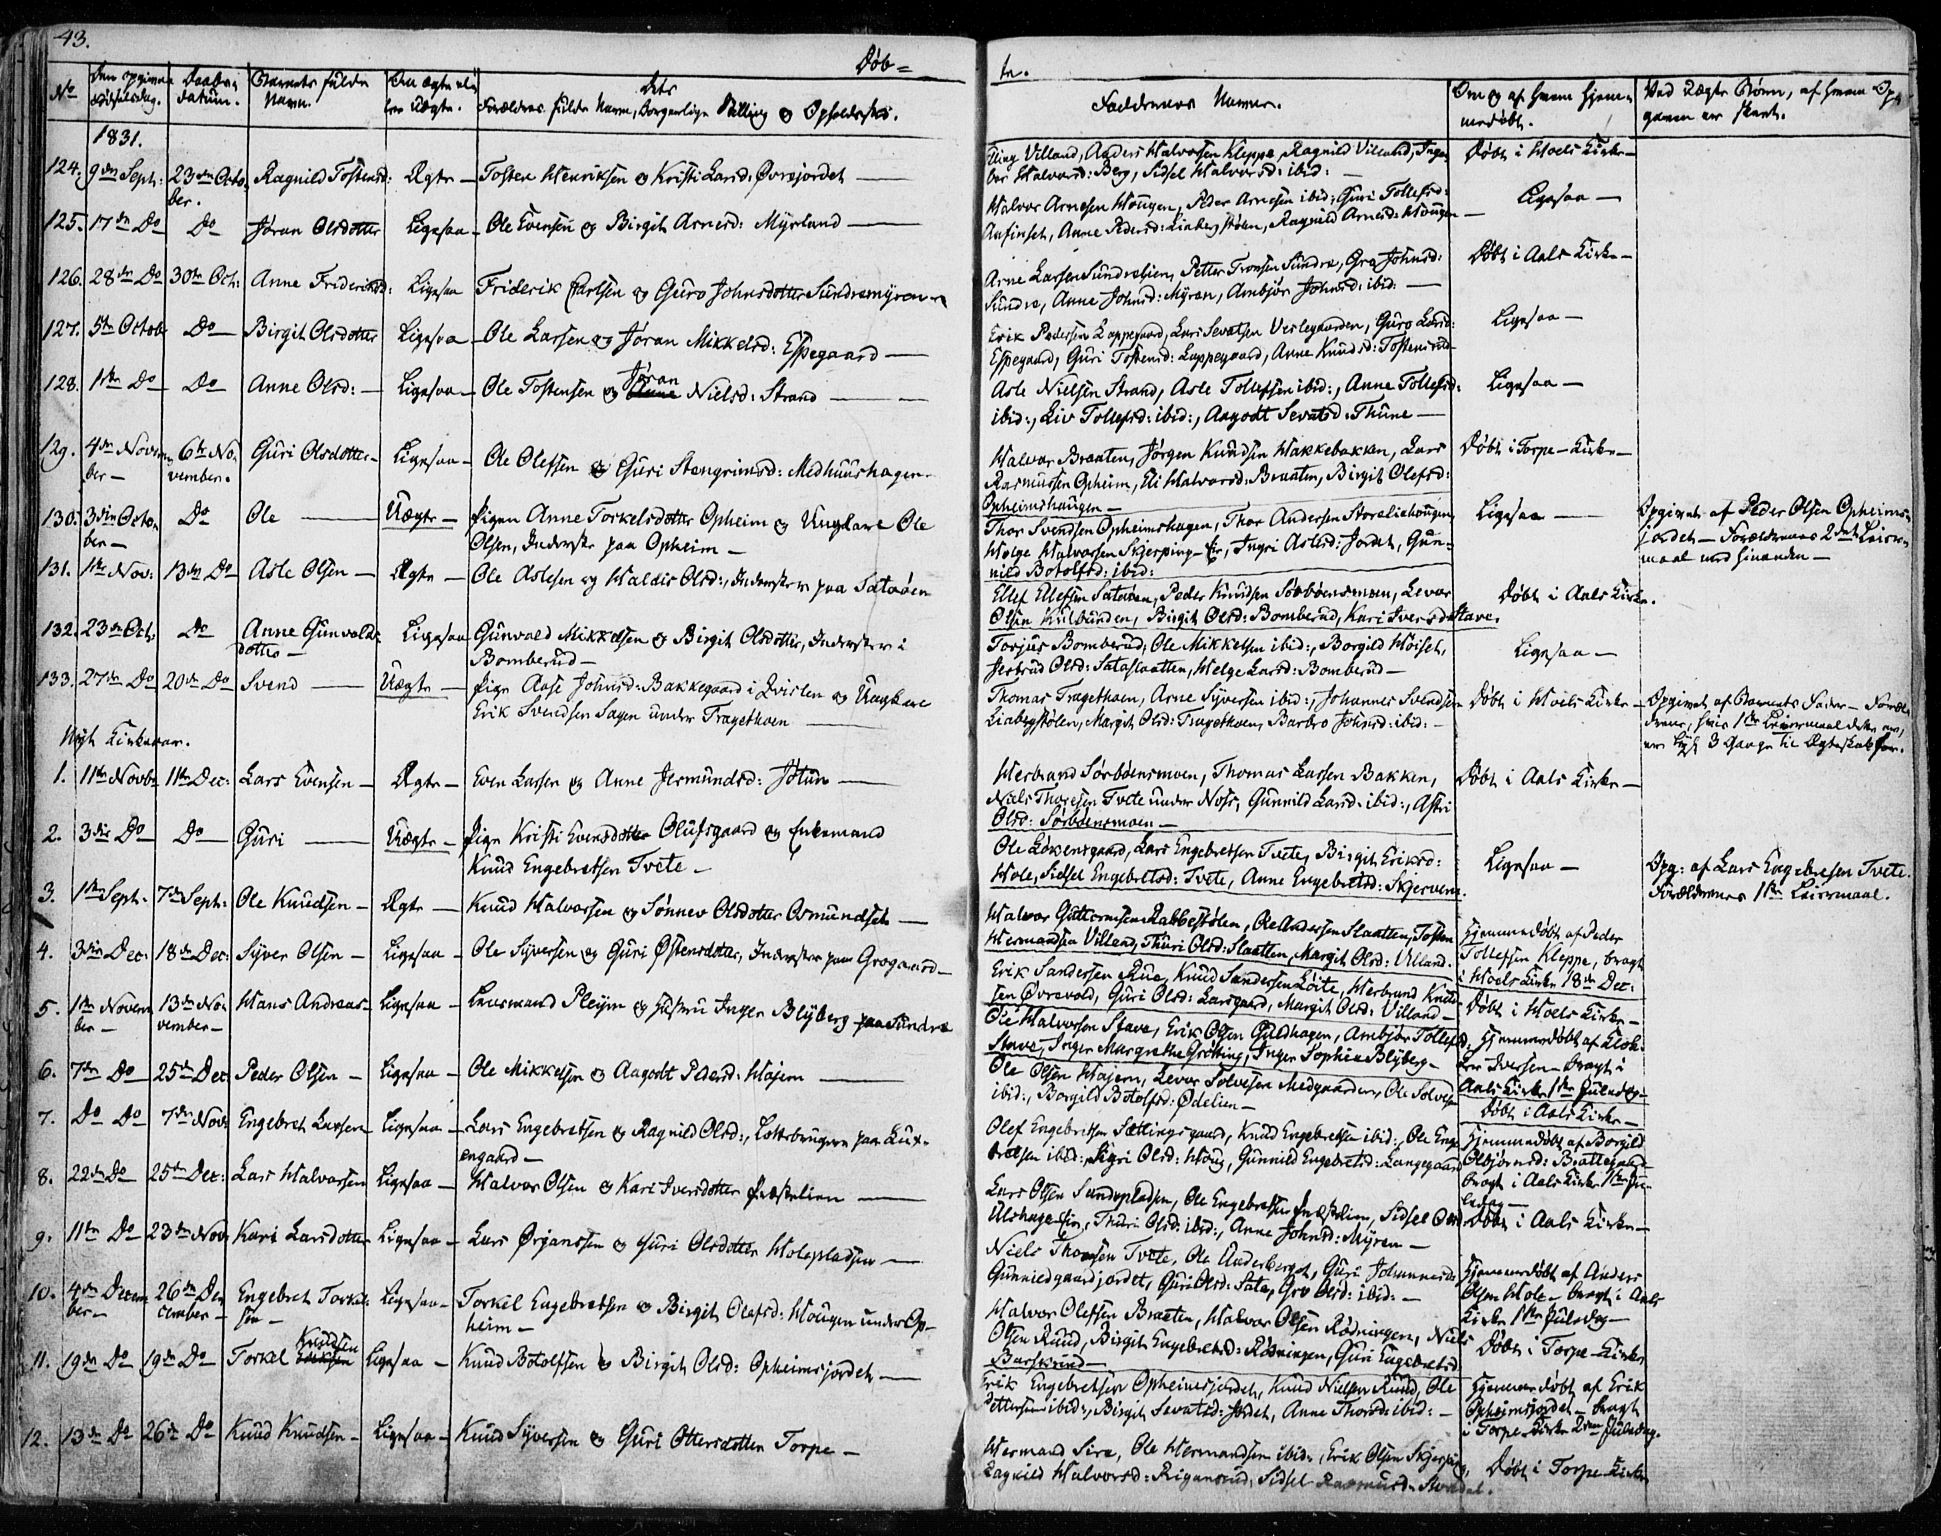 43.
Døb=
te.
No
Den opgivne Fødselsdag.
Daabs-datum.
Barnets fulde Navn.
Om Ægte eller Uægte.
Dets Forældres fulde Navn, Borgerlige Stilling og Opholdssted.
Faddernes Navne.
Om og af hvem hjemmedøbt.
Ved Uægte Børn, af hvem Opgaven er skeet.
1831.
124. 9de Sept: 23de Octo-
ber.
Ragnild Tostensd: Ægte – Tosten Henriksen og Kristi Larsd: Øvrejordet
Villand, Anders Halvorsen Kleppe, Ragnild Villand, Inge-
bor Halvorsd: Berg, Sidsel Halvorsd: ibid:
Døbt i Hoels Kirke –
125. 17de Do Do Jøran Olsdotter Ligesaa – Ole Evensen og Birgit Arnesd: Myrland
Halvor Arnesen Hougen, Peder Arnesen ibid; Guri Tollefsd:
Anfinset, Anne Pedersd: Liabergstølen, Ragnild Arnesd: Hougen
Ligesaa –
126. 28de Do 30te Oct: Anne Frideriksd: Ligesaa Friderik Carlsen og Guro Johnsdotter Sundremyren
Arne Larsen Sundrelien, Petter Tronsen Sundre, Gro Johnsd:
Sundre, Anne Johnsd: Myren, Ambjør Johnsd: ibid:
Døbt i Aals Kirke –
127. 5te Octob Do – Birgit Olsdotter Ligesaa – Ole Larsen og Jøran Mikkelsd: Espegaard
Erik Pedersen Lappegaard, Lars Sevatsen Veslegaarden, Guro Larsd:
Espegaard, Guri Tostensd: Lappegaard, Anne Knudsd:
Ligesaa –
128. 1ste Do Do Anne Olsd: – Ligesaa – Ole Tostensen og Jøran Nielsd: Strand
Asle Nielsen Strand, Asle Tollefsen ibid:, Anne Tollefsd:
ibid:, Liv Tollefsd: ibid:, Aagodt Sevatsd: Thune –
Ligesaa –
129. 4de Novem-
ber –
6te No-
vember.
Guri Olsdotter – Ligesaa – Ole Olefsen og Guri Stengrimsd: Medhuushagen –
Halvor Braaten, Jørgen Knudsen Hakkebakken, Lars
Rasmussen Opheim, Eli Halvorsd: Braaten, Birgit Olefsd:
Opheimshaugen –
Døbt i Torpe-Kirke –
130. 3die Octo-
ber –
Do Ole Uægte – Pigen Anne Torkelsdotter Opheim og Ungkarl Ole
Olsen, Inderste paa Opheim –
Thor Svendsen Opheimshagen, Thor Andersen
Helge Halvorsen Skjerping-Eie, Ingri Aslesd: Jordet, Gun-
nild Botolfsd: ibid:
Ligesaa
Opgivet af Peder Olsen Opheims-
jordet – Forældrenes 2det Leier-
maal med hinanden –
131. 1ste Nov: 13de Do Asle Olsen – Ægte – Ole Aslesen og Haldis Olsd:, Inderster paa Sataøen
Ellef Ellefsen Sataøen, Peder Knudsen Sørbøensmoen, Levor
Olsen Kulbunden, Birgit Olsd: Bomberud, Kari Iversd: Stave.
Døbt i Aals Kirke.
132. 23de Oct: Do Anne Gunvalds-
dotter –
Ligesaa Gunvald Mikkelsen og Birgit Olsdotter, Inderster i
Bomberud –
Torjus Bomberud, Ole Mikkelsen ibid:, Borgild Høiset,
Jertrud Olsd: Sataslaatten, Helge Larsd: Bomberud –
Ligesaa –
133. 27de Do 20de Do Svend Uægte – Pige Aase Johnsd: Bakkegaard i Qvislen og Ungkarl
Erik Svendsen Sagen under Tragethoen
Thomas Tragethoen, Arne Syversen ibid:, Johannes Svendsen
Liabergstølen, Margit Olsd: Tragethoen, Barbro Johnsd: ibid: –
Døbt i Hoels Kirke –
Opgivet af Barnets Fader – Foræl-
drene, hvis 1ste Leiermaal dette er,
ere lyst 3 Gange til Ægteskab
Nyt Kirkeaar.
1. 11te Novbr 11te Dec: Lars Evensen – Ægte – Even Larsen og Anne Jermundsd: Jøtun
Herbrand Sørbøensmoen, Thomas Larsen Bakken,
Niels Thoresen Tvete under Noss, Gunnild Larsd: ibid:, Astri
Olsd: Sørbøensmoen –
Døbt i Aals Kirke –
2. 3die Do Do – Guri Uægte – Pige Kristi Evensdotter Olufsgaard og Enkemand
Knud Engebretsen Tvete –
Ole Løkensgaard, Lars Engebretsen Tvete, Birgit Eriksd:
Hole, Sidsel Engebretsd: Tvete, Anne Engebretsd: Skjerven.
Ligesaa –
Opg: af Lars Engebretsen Tvete.
Forældrenes 1ste Leiermaal.
3. 1ste Sept. 7de Sept: Ole Knudsen – Ægte – Knud Halvorsen og Sønnev Olsdotter Osmundset
Halvor Guttormsen Rabbestølen, Ole Andersen Slaatten, Tosten
Hermandsen Villand, Thuri Olsd: Slaatten, Margit Olsd: Villand.
Hjemmedøbt af Peder
Tollefsen Kleppe, bragt
i Hoels Kirke 18de Dec:
4. 3die Dec: 18de Dec: Syver Olsen – Ligesaa – Ole Syversen og Guri Østensdotter, Inderster paa Grogaard –
Erik Sandersen Rue, Knud Sandersen Løite, Herbrand Knud-
sen Øvrevold, Guri Olsd: Larsgaard, Margit Olsd: Villand –
Døbt i Hoels Kirke –
5. 1ste Novem-
ber –
13de No-
vember –
Hans Andreas – Ligesaa – Lensmand Pleym og Hustru Inger Blyberg paa Sundre
Ole Halvorsen Stave, Erik Olsen Guldhagen, Ambjør Tollefsd:
Stave, Inger Margrethe Grøtting, Inger Sophia Blyberg –
Hjemmedøbt af Klok-
ker Iversen – bragt i
Aals Kirke 1ste Juledag –
6. 7de Do 25de Dec: Peder Olsen – Ligesaa – Ole Mikkelsen og Aagodt Pedersd: Højem
Ole Olsen Højem, Levor Solvesen Medgaarden, Ole Solves-
ibid:, Borgild Botolfsd: Ødelien –
Døbt i Aals Kirke –
7. Do Do 7de Nov: Engebret Larsen – Ligesaa – Lars Engebretsen og Ragnild Olsd:, Lottebrugere paa
engaard –
Olef Engebretsen Sættingsgaard, Knud Engebretsen ibid:, Ole Enge-
bretsen ibid:, Sigri Olsd: Houg, Gunnild Engebretsd: Langegaard
Hjemmedøbt af Borgild
Olbjørnsd: Brattegaard –
bragt i Aals Kirke 1ste Ju-
ledag –
8. 22de Do 25de Dec: Lars Halvorsen Ligesaa – Halvor Olsen og Kari Iversdotter Præstelien
Lars Olsen Sundrepladsen, Ole Engebretsen Præstelien, Sidsel Olsd:
Ulshage Eie, Thuri Olsd: ibid:, Anne Johnsd: Myren –
Døbt i Aals Kirke –
9. 11te Do 23de Nov: Kari Larsdotter Ligesaa – Lars Ørjansen og Guri Olsdotter Holepladsen
Niels Thoresen Tvete, Ole Anderberget, Guri Johannesd:
Gunnildgaardjordet, Guri Olsd: Sata, Gro Olsd: ibid: –
Hjemmedøbt af Anders
Olsen Hole – bragt i Aals
Kirke 1ste Juledag –
10. 4de Decem-
ber –
26de De-
cember –
Engebret Torkel-
sen –
Ligesaa – Torkel Engebretsen og Birgit Olefsd: Hougen under Op-
heim –
Halvor Olefsen Braaten, Halvor Olsen Rødningen, Niels
Olsen Ruud, Birgit Engebretsd: Rødningen, Guri Engebretsd:
Barskrind –
Døbt i Torpe-Kirke
11. 19de Do 19de Do Torkel Knudsen Ligesaa – Knud Botolfsen og Birgit Olsd: Opheimsjordet
Erik Engebretsen Opheimsjordet, Knud Nielsen Ruud, Ole
Pettersen ibid:, Birgit Sevatsd: Jordet, Anne Thorsd: ibid: –
Hjemmedøbt af Erik
Opheimsjordet – bragt
i Torpe Kirke 2den Juledag.
12. 13de Do 26de Do Knud Knudsen – Ligesaa – Knud Syversen og Guri Ottersdotter Torpe –
Hermand Sire, Ole Hermandsen ibid:, Erik Olsen Skjerping,
Ragnild Halvorsd: Rigansrud, Sidsel Rasmusd:
Døbt i Torpe-Kirke